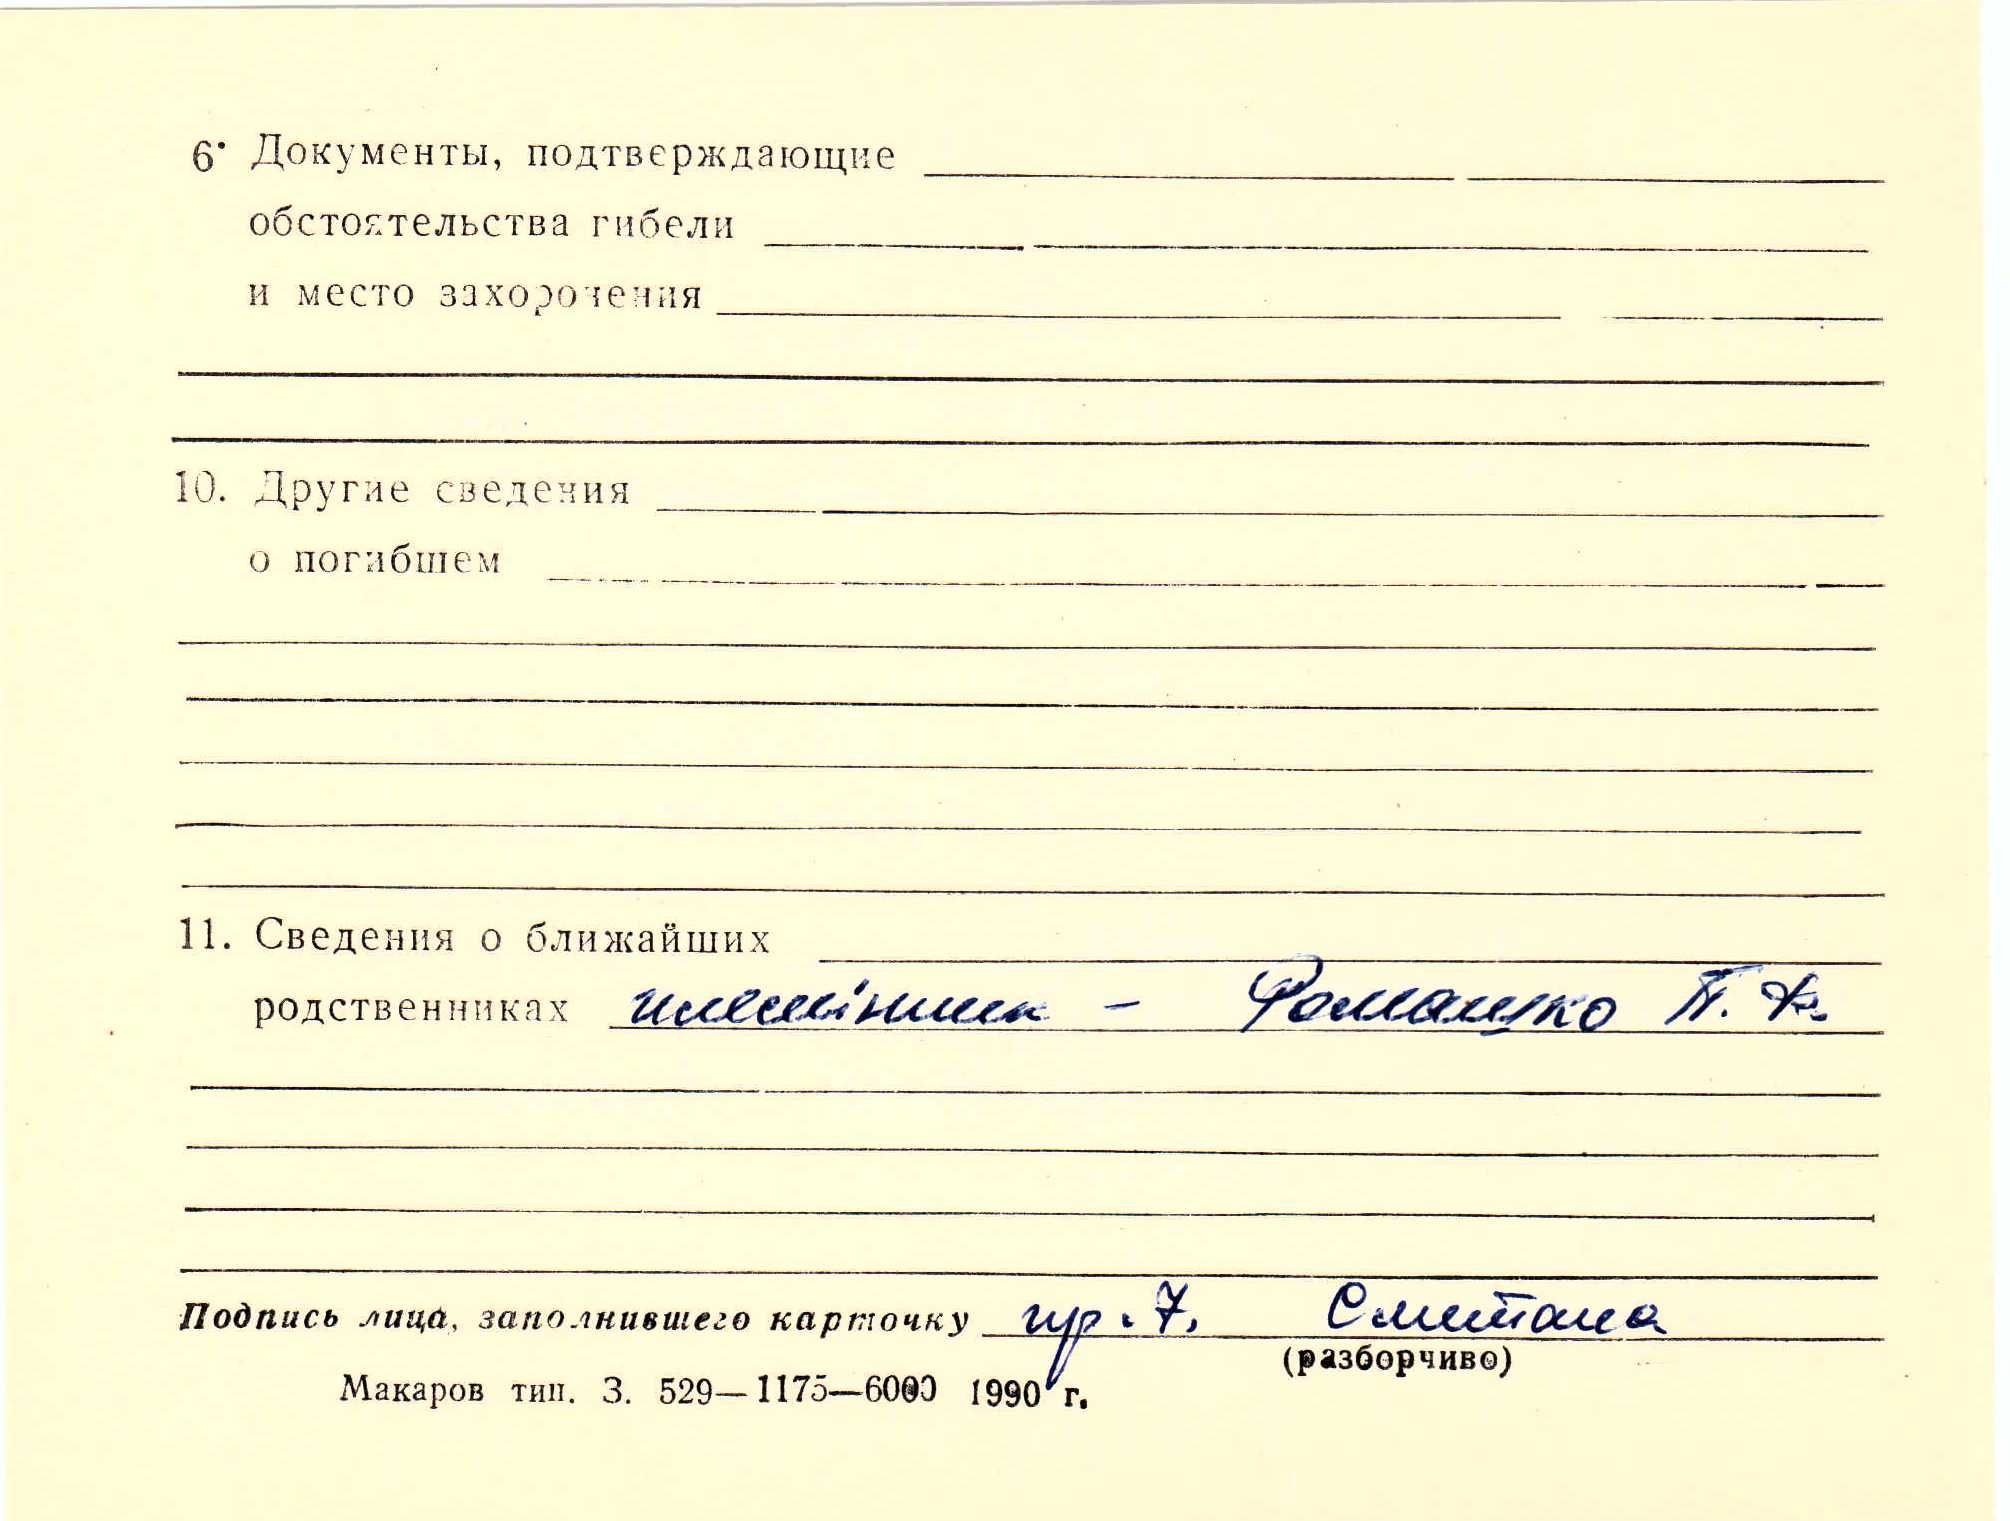 6. Документы, подтверждающие
обстоятельства гибели
и место захоронения
10. Другие сведения
о погибшем
11. Сведения о ближайших
родственниках племінник – Ромашко П. Ф.
Подпись лица, заполнившего карточку гр. 7. Сметана
(разборчиво)
Макаров тип. З. 529—1175—6000 1990 г.